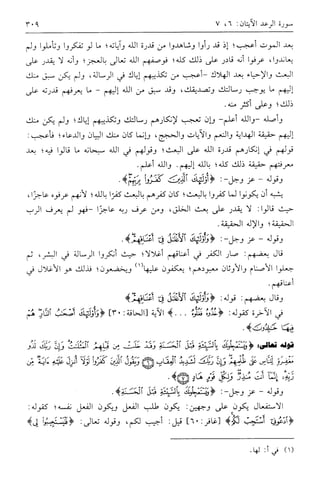 سورة الرعد الآيتان: ٦، ٧ ٣٠٩
بعد الموت أعجب؛ إذ قد رأوا وشاهدوا من قدرة الله وآياته؛ ما لو تفكروا وتأملوا ولم
يعاندوا، عرفوا أنه قادر على ذلك كله؛ فوصفهم الله تعالى بالعجز؛ وأنه لا يقدر على
البعث والإحياء بعد الهلاك -أعجب من تكذيبهم إياك في الرسالة، ولم يكن سبق منك
إليهم ما يوجب رسالتك وتصديقك، وقد سبق من الله إليهم - ما يعرفهم قدرته على
ذلك؛ وعلى أكثر منه.
وأصله -والله أعلم- وإن تعجب لإنكارهم رسالتك وتكذيبهم إياك؛ ولم يكن منك
إليهم حقيقة الهداية والنعم والآيات والحجج، وإنما كان منك البيان والدعاء؛ فأعجب:
قولهم في إنكارهم قدرة الله على البعث؛ وقولهم في الله سبحانه ما قالوا فيه؛ بعد
معرفتهم حقيقة ذلك كله؛ بالله إليهم. والله أعلم.
وقوله - عز وجل-: ﴿أُوْلَٰٓئِكَ ٱلَّذِينَ كَفَرُواْ بِرَبِّهِمۡ﴾.
يشبه أن يكونوا لما كفروا بالبعث؛ كان كفرهم بالبعث كفرًا بالله؛ لأنهم عرفوه عاجزًا،
حيث قالوا: لا يقدر على بعث الخلق، ومن عرف ربه عاجزًا -فهو لم يعرف الرب
الحقيقة؛ والإله الحقيقة.
وقوله - عز وجل-: ﴿وَأُوْلَٰٓئِكَ ٱلۡأَغۡلَٰلُ فِيٓ أَعۡنَاقِهِمۡ﴾.
قال بعضهم: صار الكفر في أعناقهم أغلالا؛ حيث أنكروا الرسالة في البشر، ثم
جعلوا الأصنام والأوثان معبودهم؛ يعكفون عليها(١) ويخضعون؛ فذلك هو الأغلال في
أعناقهم.
وقال بعضهم: قوله: ﴿وَأُوْلَٰٓئِكَ ٱلۡأَغۡلَٰلُ فِيٓ أَعۡنَاقِهِمۡ﴾
في الآخرة كقوله: ﴿خُذُوهُ فَغُلُّوهُ ...﴾ الآية [الحاقة: ٣٠] ﴿وَأُوْلَٰٓئِكَ أَصۡحَٰبُ ٱلنَّارِۖ هُمۡ
فِيهَا خَٰلِدُونَ﴾.
قوله تعالى: ﴿وَيَسۡتَعۡجِلُونَكَ بِٱلسَّيِّئَةِ قَبۡلَ ٱلۡحَسَنَةِ وَقَدۡ خَلَتۡ مِن قَبۡلِهِمُ ٱلۡمَثُلَٰتُۗ وَإِنَّ رَبَّكَ لَذُو
مَغۡفِرَةٖ لِّلنَّاسِ عَلَىٰ ظُلۡمِهِمۡۖ وَإِنَّ رَبَّكَ لَشَدِيدُ ٱلۡعِقَابِ ۝٦ وَيَقُولُ ٱلَّذِينَ كَفَرُواْ لَوۡلَآ أُنزِلَ عَلَيۡهِ ءَايَةٞ مِّن
رَّبِّهِۦٓۗ إِنَّمَآ أَنتَ مُنذِرٞۖ وَلِكُلِّ قَوۡمٍ هَادٍ ۝٧﴾.
وقوله - عز وجل-: ﴿وَيَسۡتَعۡجِلُونَكَ بِٱلسَّيِّئَةِ قَبۡلَ ٱلۡحَسَنَةِ﴾.
الاستفعال يكون على وجهين: يكون طلب الفعل ويكون الفعل نفسه؛ كقوله:
﴿ٱدۡعُونِيٓ أَسۡتَجِبۡ لَكُمۡۚ﴾ [غافر: ٦٠] قيل: أجيب لكم، وقوله تعالى: ﴿فَلۡيَسۡتَجِيبُواْ لِي﴾
(١) في أ: لها.